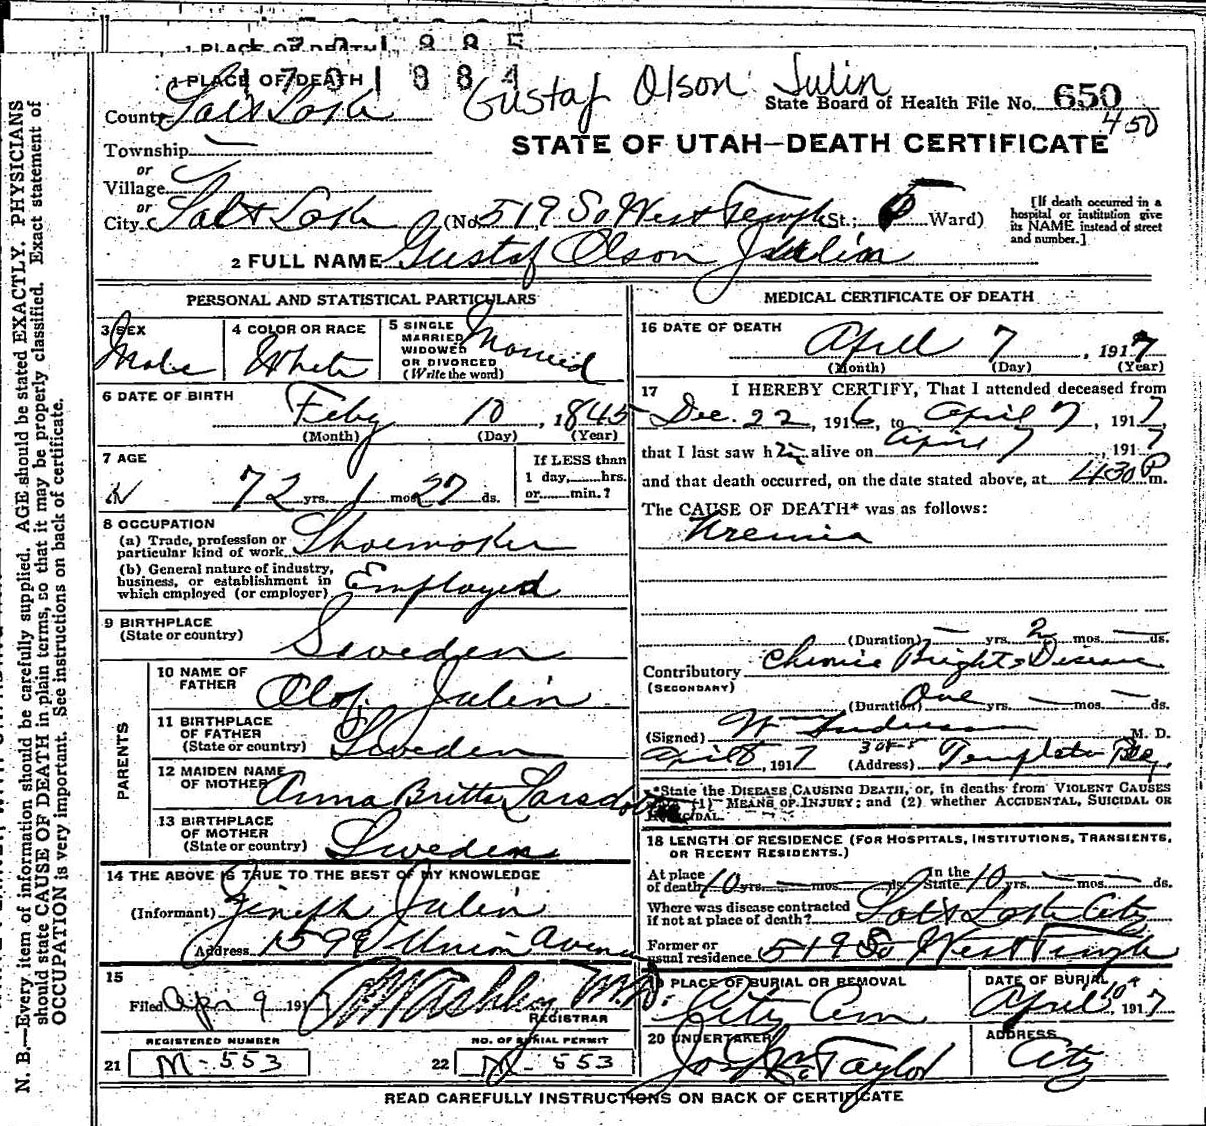 1 PLACE OF DEATH
1 PLACE OF DEATH
1701884
Gustaf Olson Julin
County Salt Lake
State Board of Health File No. 650
450
STATE OF UTAH—DEATH CERTIFICATE
Township
or
Village
or
City Salt Lake (No. 519 So West Temple St.; 5 Ward)
[If death occurred in a hospital or institution give its NAME instead of street and number.]
2 FULL NAME Gustaf Olson Julin
PERSONAL AND STATISTICAL PARTICULARS
3 SEX
Male
4 COLOR OR RACE
White
5 SINGLE
MARRIED
WIDOWED
OR DIVORCED
(Write the word)
Married
6 DATE OF BIRTH
Feby 10, 1845
(Month) (Day) (Year)
7 AGE
72 yrs. 1 mos. 27 ds.
If LESS than
1 day,......hrs.
or......min.?
8 OCCUPATION
(a) Trade, profession or
particular kind of work Shoemaker
(b) General nature of industry,
business, or establishment in
which employed (or employer) Employed
9 BIRTHPLACE
(State or country)
Sweden
PARENTS
10 NAME OF
FATHER
Olof Julin
11 BIRTHPLACE
OF FATHER
(State or country)
Sweden
12 MAIDEN NAME
OF MOTHER
Anna Britta
13 BIRTHPLACE
OF MOTHER
(State or country)
Sweden
14 THE ABOVE IS TRUE TO THE BEST OF MY KNOWLEDGE
(Informant) Julin
Address Union Avenue
15
Filed Apr 9 191
M.D.
REGISTRAR
REGISTERED NUMBER
21 M-553
NO. OF BURIAL PERMIT
22 M-553
MEDICAL CERTIFICATE OF DEATH
16 DATE OF DEATH
April 7, 1917
(Month) (Day) (Year)
17 I HEREBY CERTIFY, That I attended deceased from
Dec. 22, 1916, to April 7, 1917
that I last saw h alive on April 7, 1917
and that death occurred, on the date stated above, at 430 P m.
The CAUSE OF DEATH* was as follows:
Uremia
(Duration) — yrs. 2 mos. — ds.
Contributory Chronic Brights Disease
(SECONDARY)
(Duration) One yrs. — mos. — ds.
(Signed) M. D.
April 8, 1917 (Address) Templeton Bldg.
*State the DISEASE CAUSING DEATH, or, in deaths from VIOLENT CAUSES
(1) MEANS OF INJURY; and (2) whether ACCIDENTAL, SUICIDAL OR
HOMICIDAL.
18 LENGTH OF RESIDENCE (FOR HOSPITALS, INSTITUTIONS, TRANSIENTS,
OR RECENT RESIDENTS.)
At place
of death 10 yrs. — mos. — ds. In the State 10 yrs. — mos. — ds.
Where was disease contracted
if not at place of death? Salt Lake City
Former or
usual residence 519 So West Temple
19 PLACE OF BURIAL OR REMOVAL
City Cem
DATE OF BURIAL
April 10, 1917
20 UNDERTAKER
Taylor
ADDRESS
City
READ CAREFULLY INSTRUCTIONS ON BACK OF CERTIFICATE
N. B.—Every item of information should be carefully supplied. AGE should be stated EXACTLY. PHYSICIANS
should state CAUSE OF DEATH in plain terms, so that it may be properly classified. Exact statement of
OCCUPATION is very important. See instructions on back of certificate.